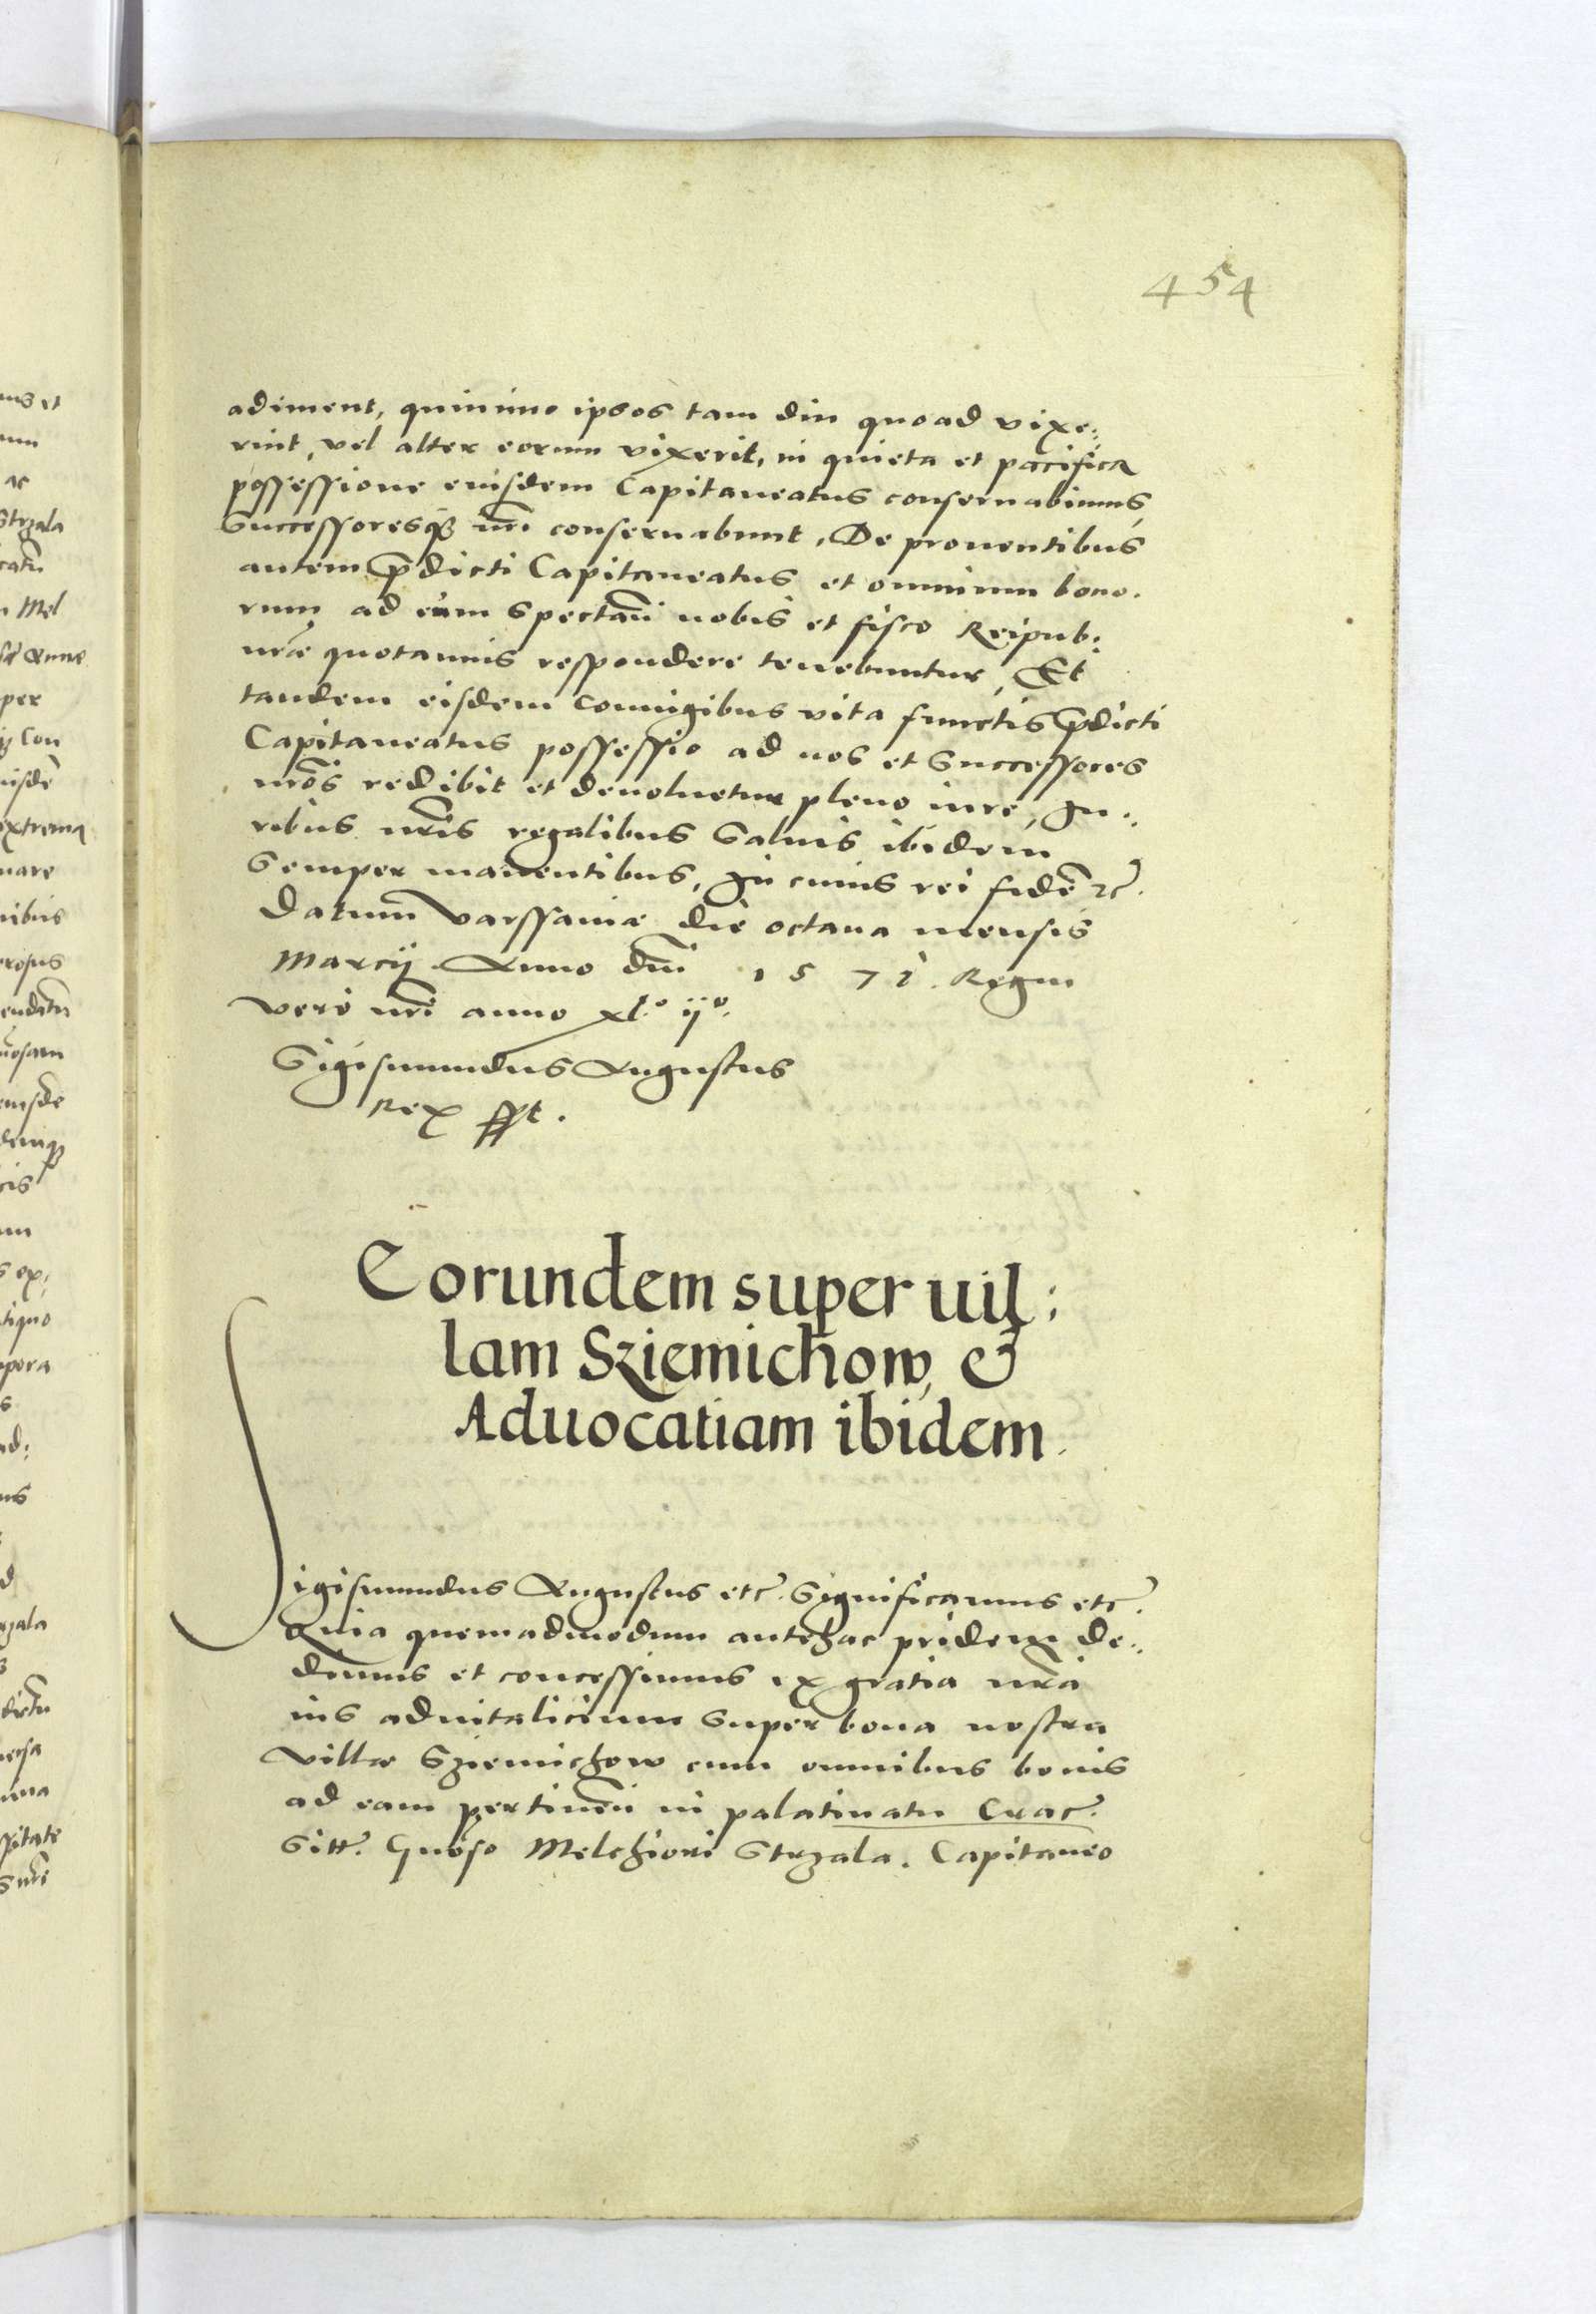 454
adiment, quinimo ipsos tam diu quoad vixe:
rint, vel alter eorum vixerit, in quieta et pacifica
possessione eiusdem Capitaneatus conseruabimus,
Successoresq₃ nr̃i conseruabunt, De prouentibus
autem p̃dicti Capitaneatus et omnium bono.
rum ad eum spectañ nobis et fisco Reipub:
nr̃æ quotannis respondere tenebuntur, Et
tandem eisdem coniugibus vita functis p̃dicti
Capitaneatus possessio ad nos et Successores
nr̃os redibit et deuoluetur pleno iure, Iu:
ribus nr̃is regalibus saluis ibidem
semper manentibus, In cuius rei fidẽ etc.
Datum Varssauiæ die octaua mensis
Marcij Anno dñi 1571. Regni
vero nr̃i anno xl.º ijº.
Sigismundus Augustus
Rex sst.
Eorundem super uil:
lam Sziemichow, &
Aduocatiam ibidem
Sigismundus Augustus etc. Significamus etc.
Quia quemadmodum antehac pridem de:
dimus et concessimus ex gratia nr̃a
ius aduitalicium super bona nostra
villæ Sziemichow cum omnibus bonis
ad eam pertineñ in palatinatu Crac.
sitt. Gñoso Melchiori Strzala. Capitaneo